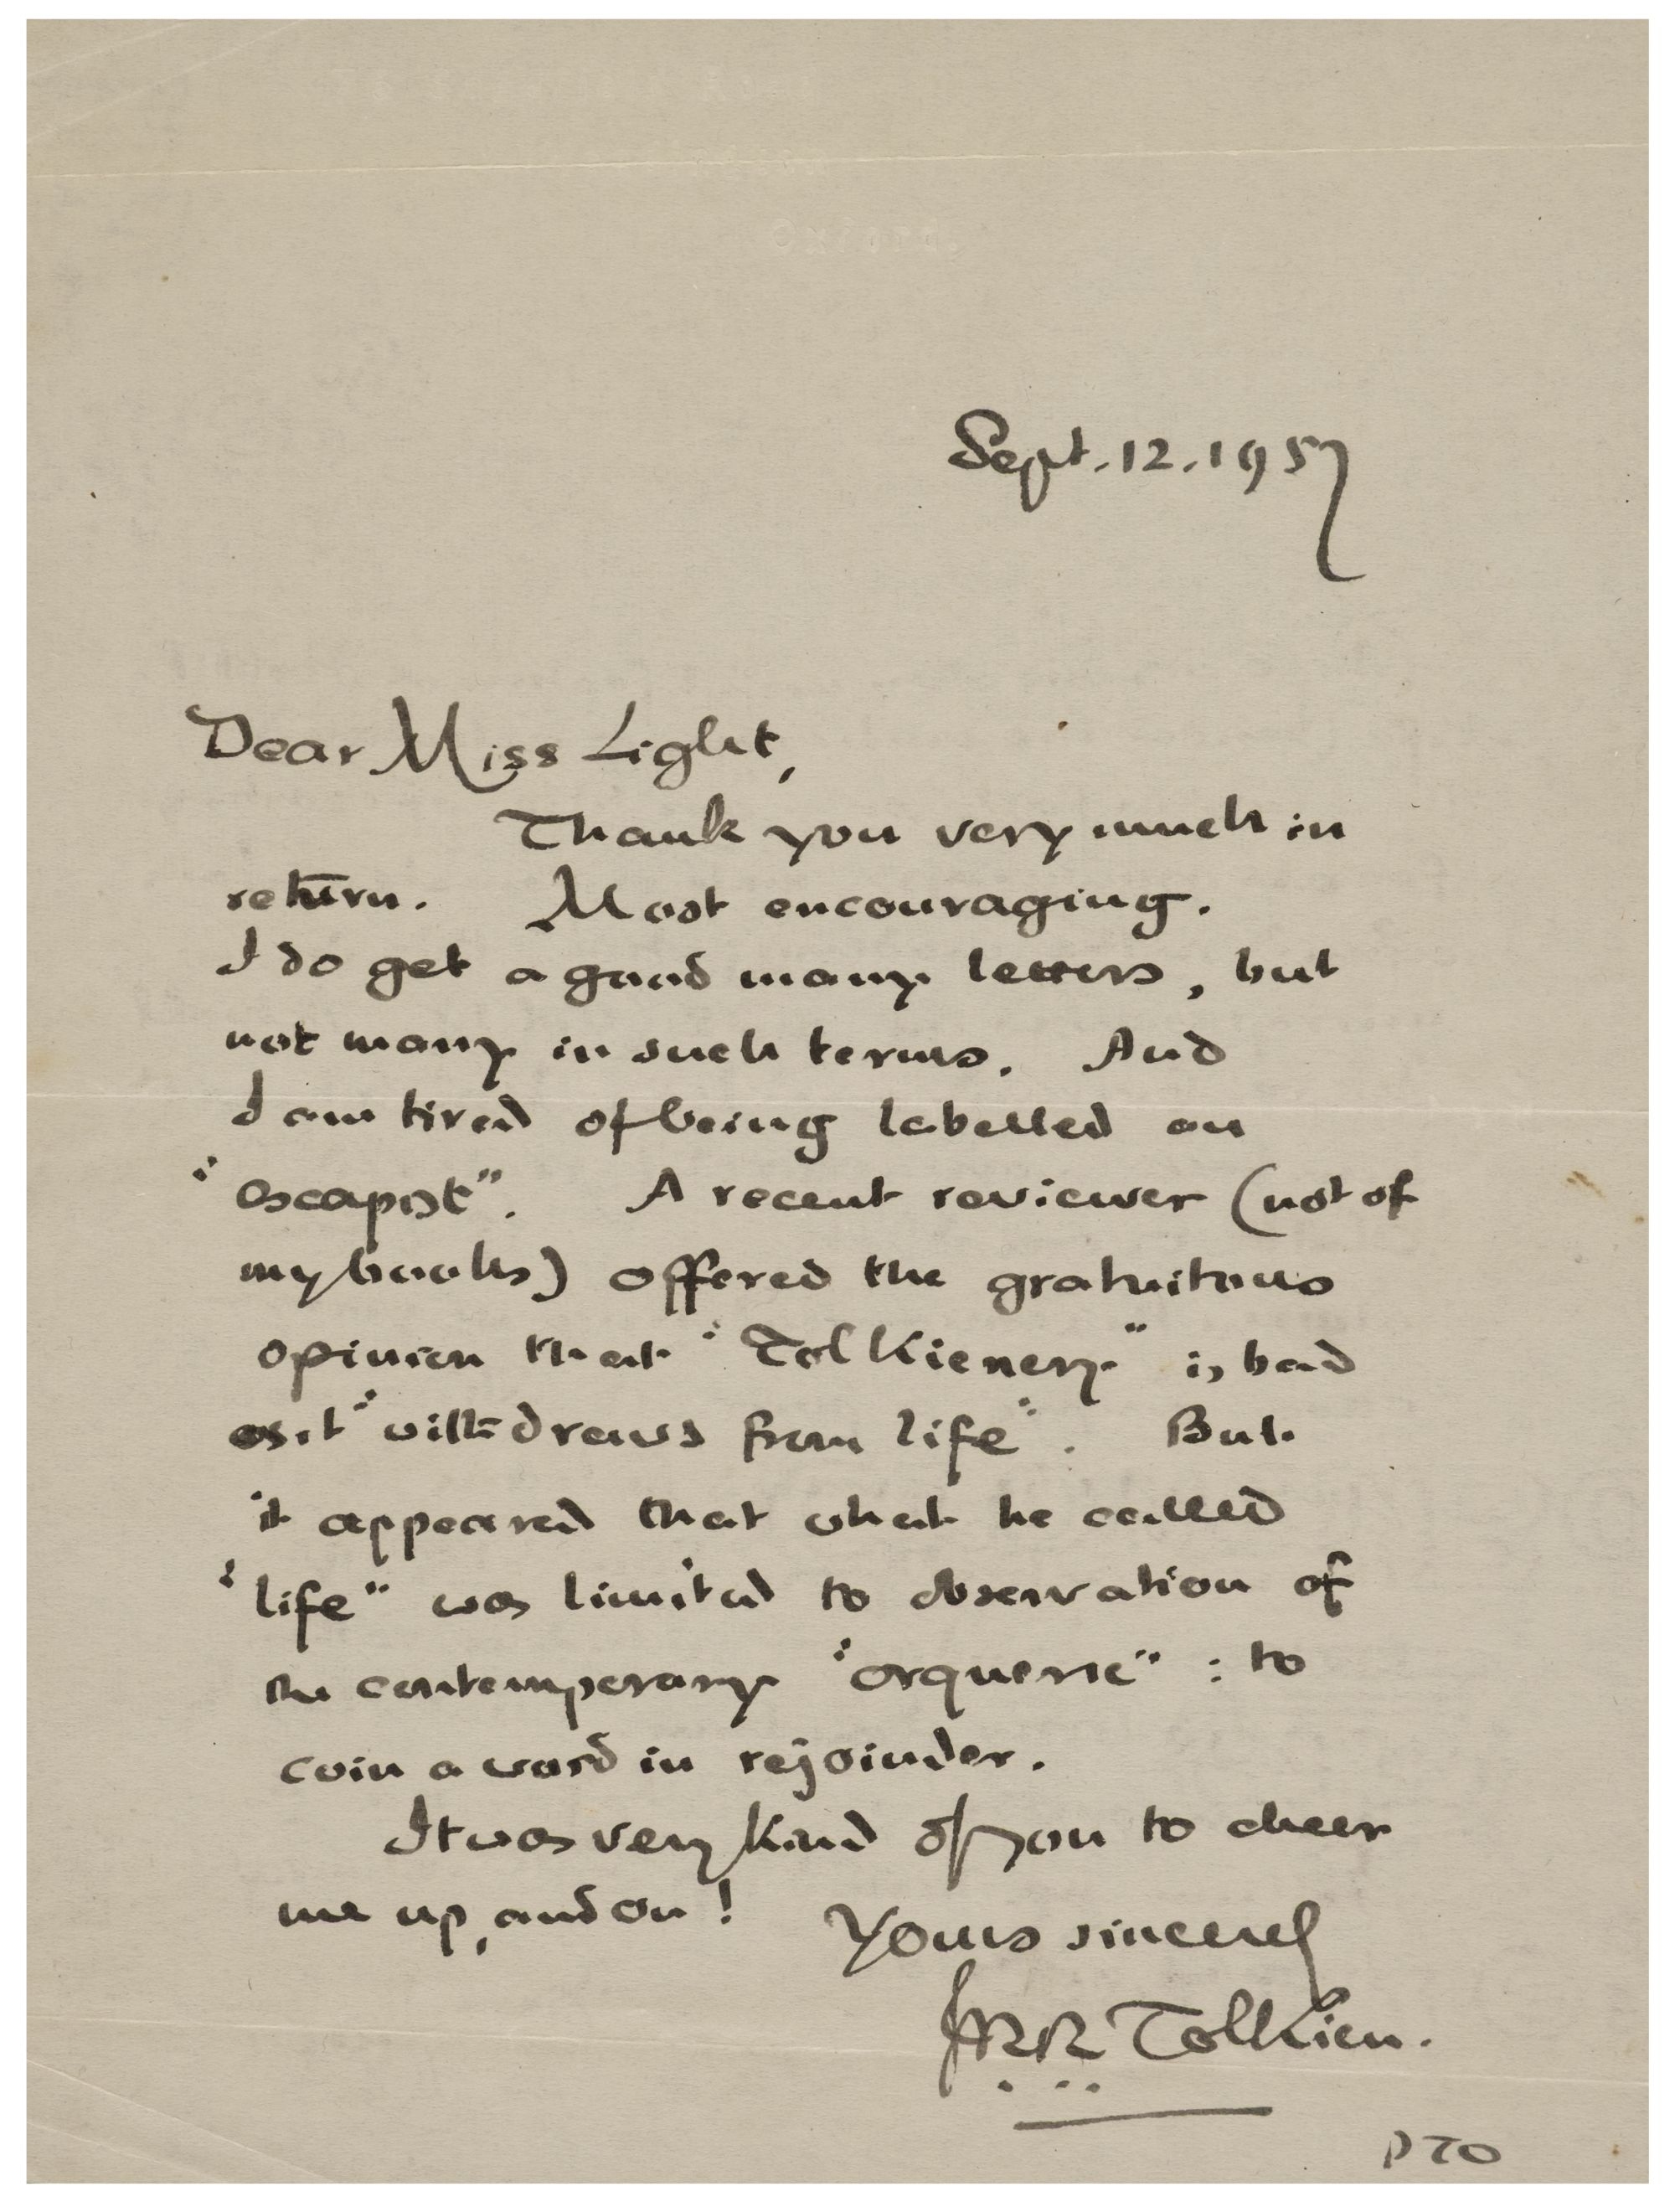 Oxford.
Sept. 12. 1957
Dear Miss Light,
Thank you very much in
return. Most encouraging.
I do get a good many letters, but
not many in such terms. And
I am tired of being labelled an
"escapist". A recent reviewer (not of
my books) offered the gratuitous
opinion that "Tolkienery" is bad
as it "withdraws from life". But
it appeared that what he called
"life" was limited to observation of
the contemporary "orquerie" : to
coin a word in rejoinder.
It was very kind of you to cheer
me up, and on!
Yours sincerely
JRR Tolkien.
PTO